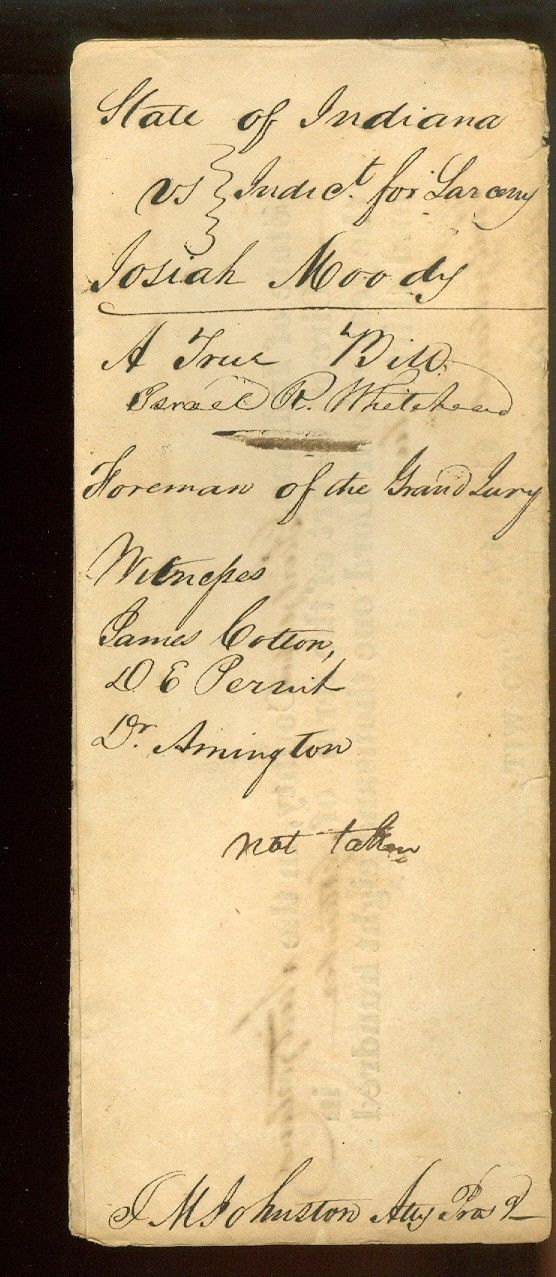 State of Indiana
vs } Indict. for Larceny
Josiah Moody
A True Bill.
Israel R. Whitehead
Foreman of the Grand Jury
Witnesses
James Cotton,
D E Perrit
Dr. Amington
not taken
J M Johnston Atty Pros